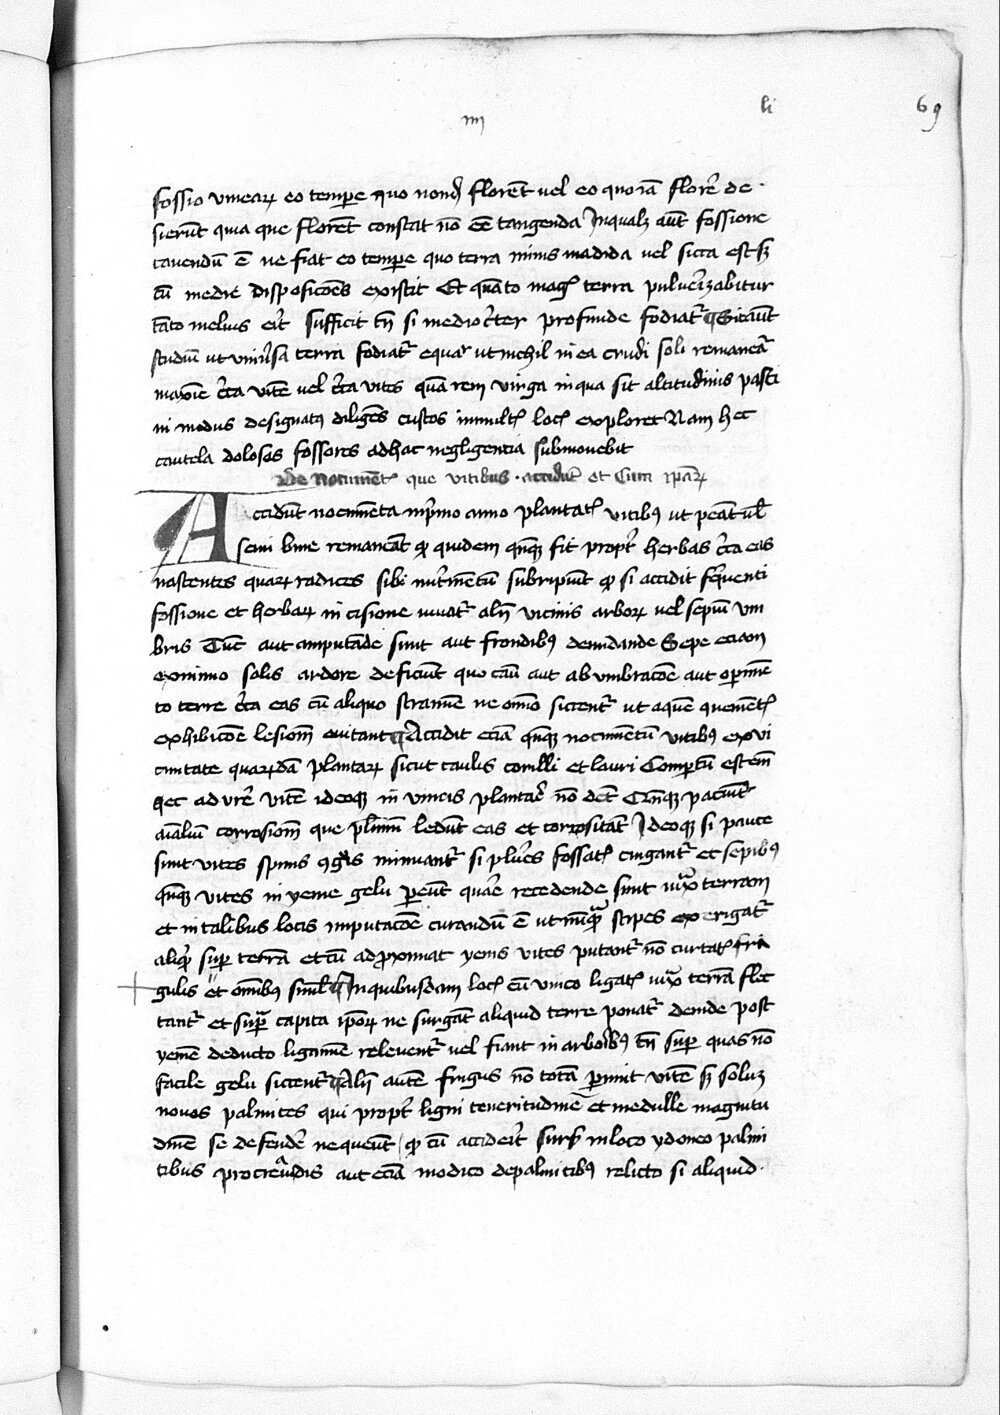 li 69
iiii
fossio vinearꝝ eo tempore quo nondū florēt uel eo quo iā florē de
sierūt quia que florēt constat nō eē tangenda In qualꝫ aūt fossione
cauendū ē ne fiat eo tempore quo terra nimis madida uel sicca est sꝫ
cū medie dispositiōis existit Et quāto magꝭ terra pulverizabitur
tāto melius erit sufficit tn̄ si mediocriter profunde fodiatr̄ Sit aūt
studiū ut uniuersa terra fodiatr̄ equaliter ut nichil in ea crudi soli remaneat
maxīe circa vitē uel circa vites quā rem virga in qua sit altitudinis pasti
ni modus designatus diligēs custos in multꝭ locꝭ exploret Nam hec
cautela dolosos fossores ad hac negligentia submouebit
De nocumētꝭ que vitibus accidūt et Cura ip̄arꝝ
Accidūt nocumēta in primo anno plantatꝭ vitibꝫ ut pereāt ul̄
semi vive remaneāt qd̄ quidem qn̄qꝫ fit propter herbas circa eas
nascentes quarꝝ radices sibi nutrimētū subripiūt qd̄ si accidit frequenti
fossione et herbarꝝ incisione iuuatr̄ aliq̄n vicinis arborꝝ uel sepiū um
bris Tūc aut amputāde sunt aut frondibꝫ denudande Sepe eciam
ex nimio solis ardore deficiūt quo casu aut ab umbratiōe aut operimē
to terre circa eas cū aliquo stramine ne omnino siccentr̄ ut aque quemētꝭ
exhibitiōe lesionē euitant Accidit eciā qn̄qꝫ nocumētū vitibꝫ ex vi
cinitate quarūdā plantarꝝ sicut caulis corilli et lauri Compertū est enim
hec adurere vitē ideoqꝫ in vineis plantari nō debēt Qn̄qꝫ paciūtr̄
aīaliū corrosionē que plurimū ledūt eas et corrositāt Ideoqꝫ si pauce
sunt vites spinis congruis muniantr̄ si plures fossatꝭ cingantr̄ et sepibꝫ
qn̄qꝫ vites in yeme gelu pereūt quare recedende sunt iuxta terram
et in talibus locis imputatiōe curandū ē ut nūquā stipes ex erigatr̄
aliquis super terrā et cū adproximat yemis vites putantr̄ nō curtatꝭ fra
gulis et omnibꝫ simul In quibusdam locꝭ cū vinco ligatꝭ iuxta terrā flec
tantr̄ et supra capita ip̄orꝝ ne surgāt aliquid terre ponatr̄ deinde post
yemē deducto ligamine releuentr̄ uel fiant in arboribꝫ tn̄ super quas nō
facile gelu siccentr̄ Aliq̄n autē frigus nō totā perimit vitē sꝫ soluꝫ
nouos palmites qui propter ligni teneritudinē et medulle magnitu
dinē se defendere nequeūt qd̄ cū acciderit sursum in loco ydoneo palmi
tibus procreandis aut eciā modico de palmitibꝫ relicto si aliquid